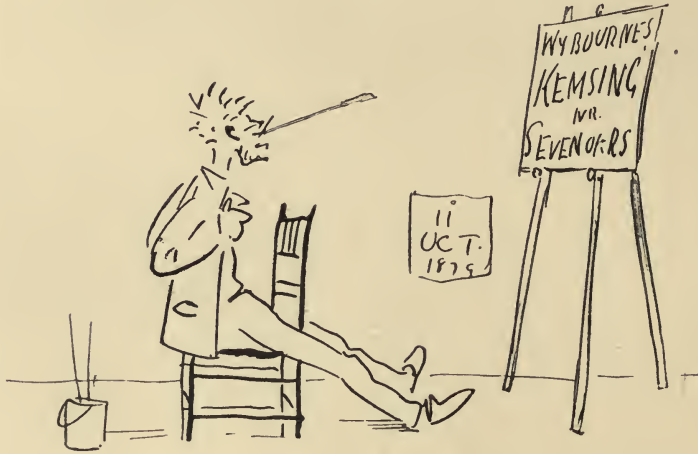 WYBOURNES
KEMSING
NR.
SEVENOAKS
11
OCT.
1879